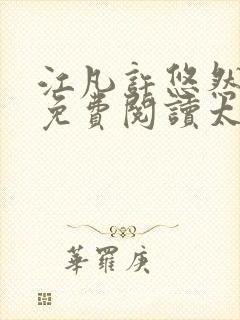 江凡許悠然
免費閱讀大
華羅庚